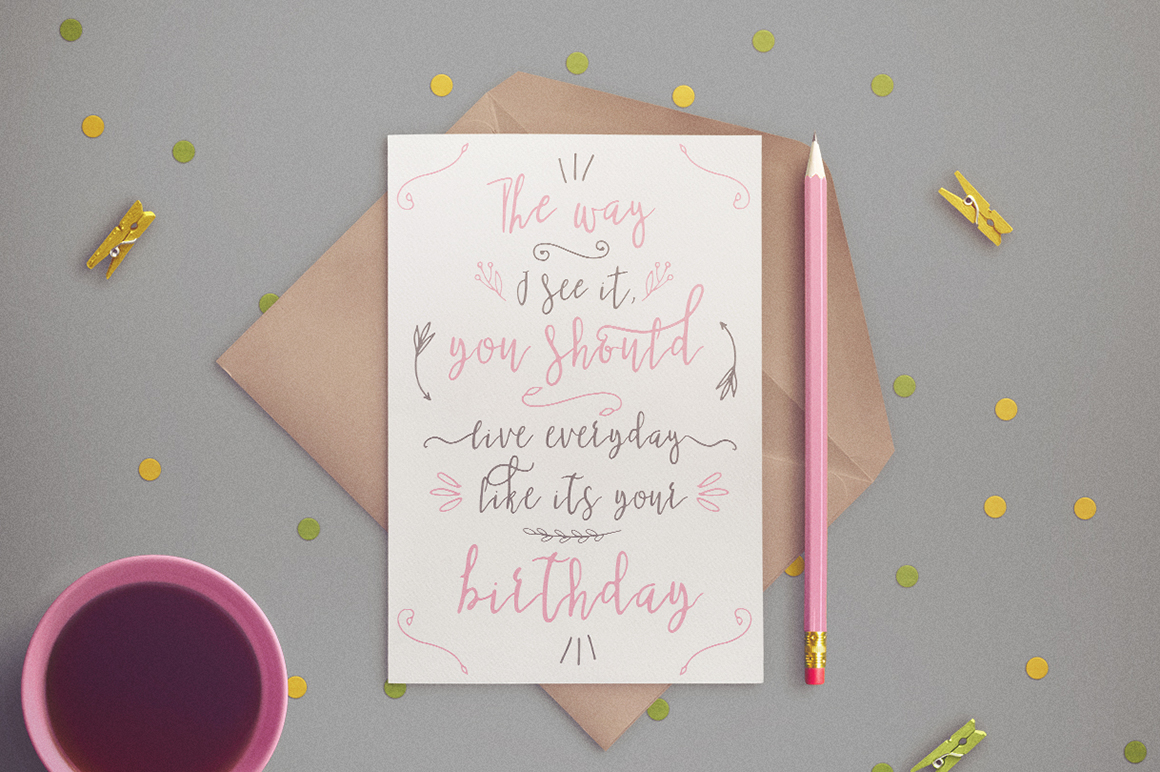 The way
I see it,
you should
live everyday
like its your
birthday